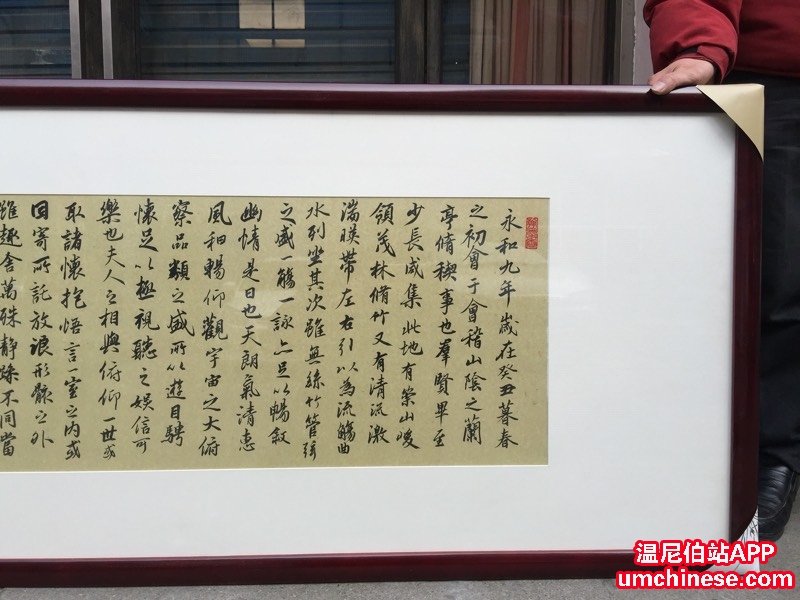 永和九年歲在癸丑暮春
之初會于會稽山陰之蘭
亭脩稧事也羣賢畢至
少長咸集此地有崇山峻
領茂林脩竹又有清流激
湍暎帶左右引以為流觴曲
水列坐其次雖無絲竹管弦
之盛一觴一詠亦足以暢敘
幽情是日也天朗氣清惠
風和暢仰觀宇宙之大俯
察品類之盛所以遊目騁
懷足以極視聽之娛信可
樂也夫人之相與俯仰一世或
取諸懷抱悟言一室之內或
因寄所託放浪形骸之外
雖趣舍萬殊静躁不同當
温尼伯站APP
umchinese.com